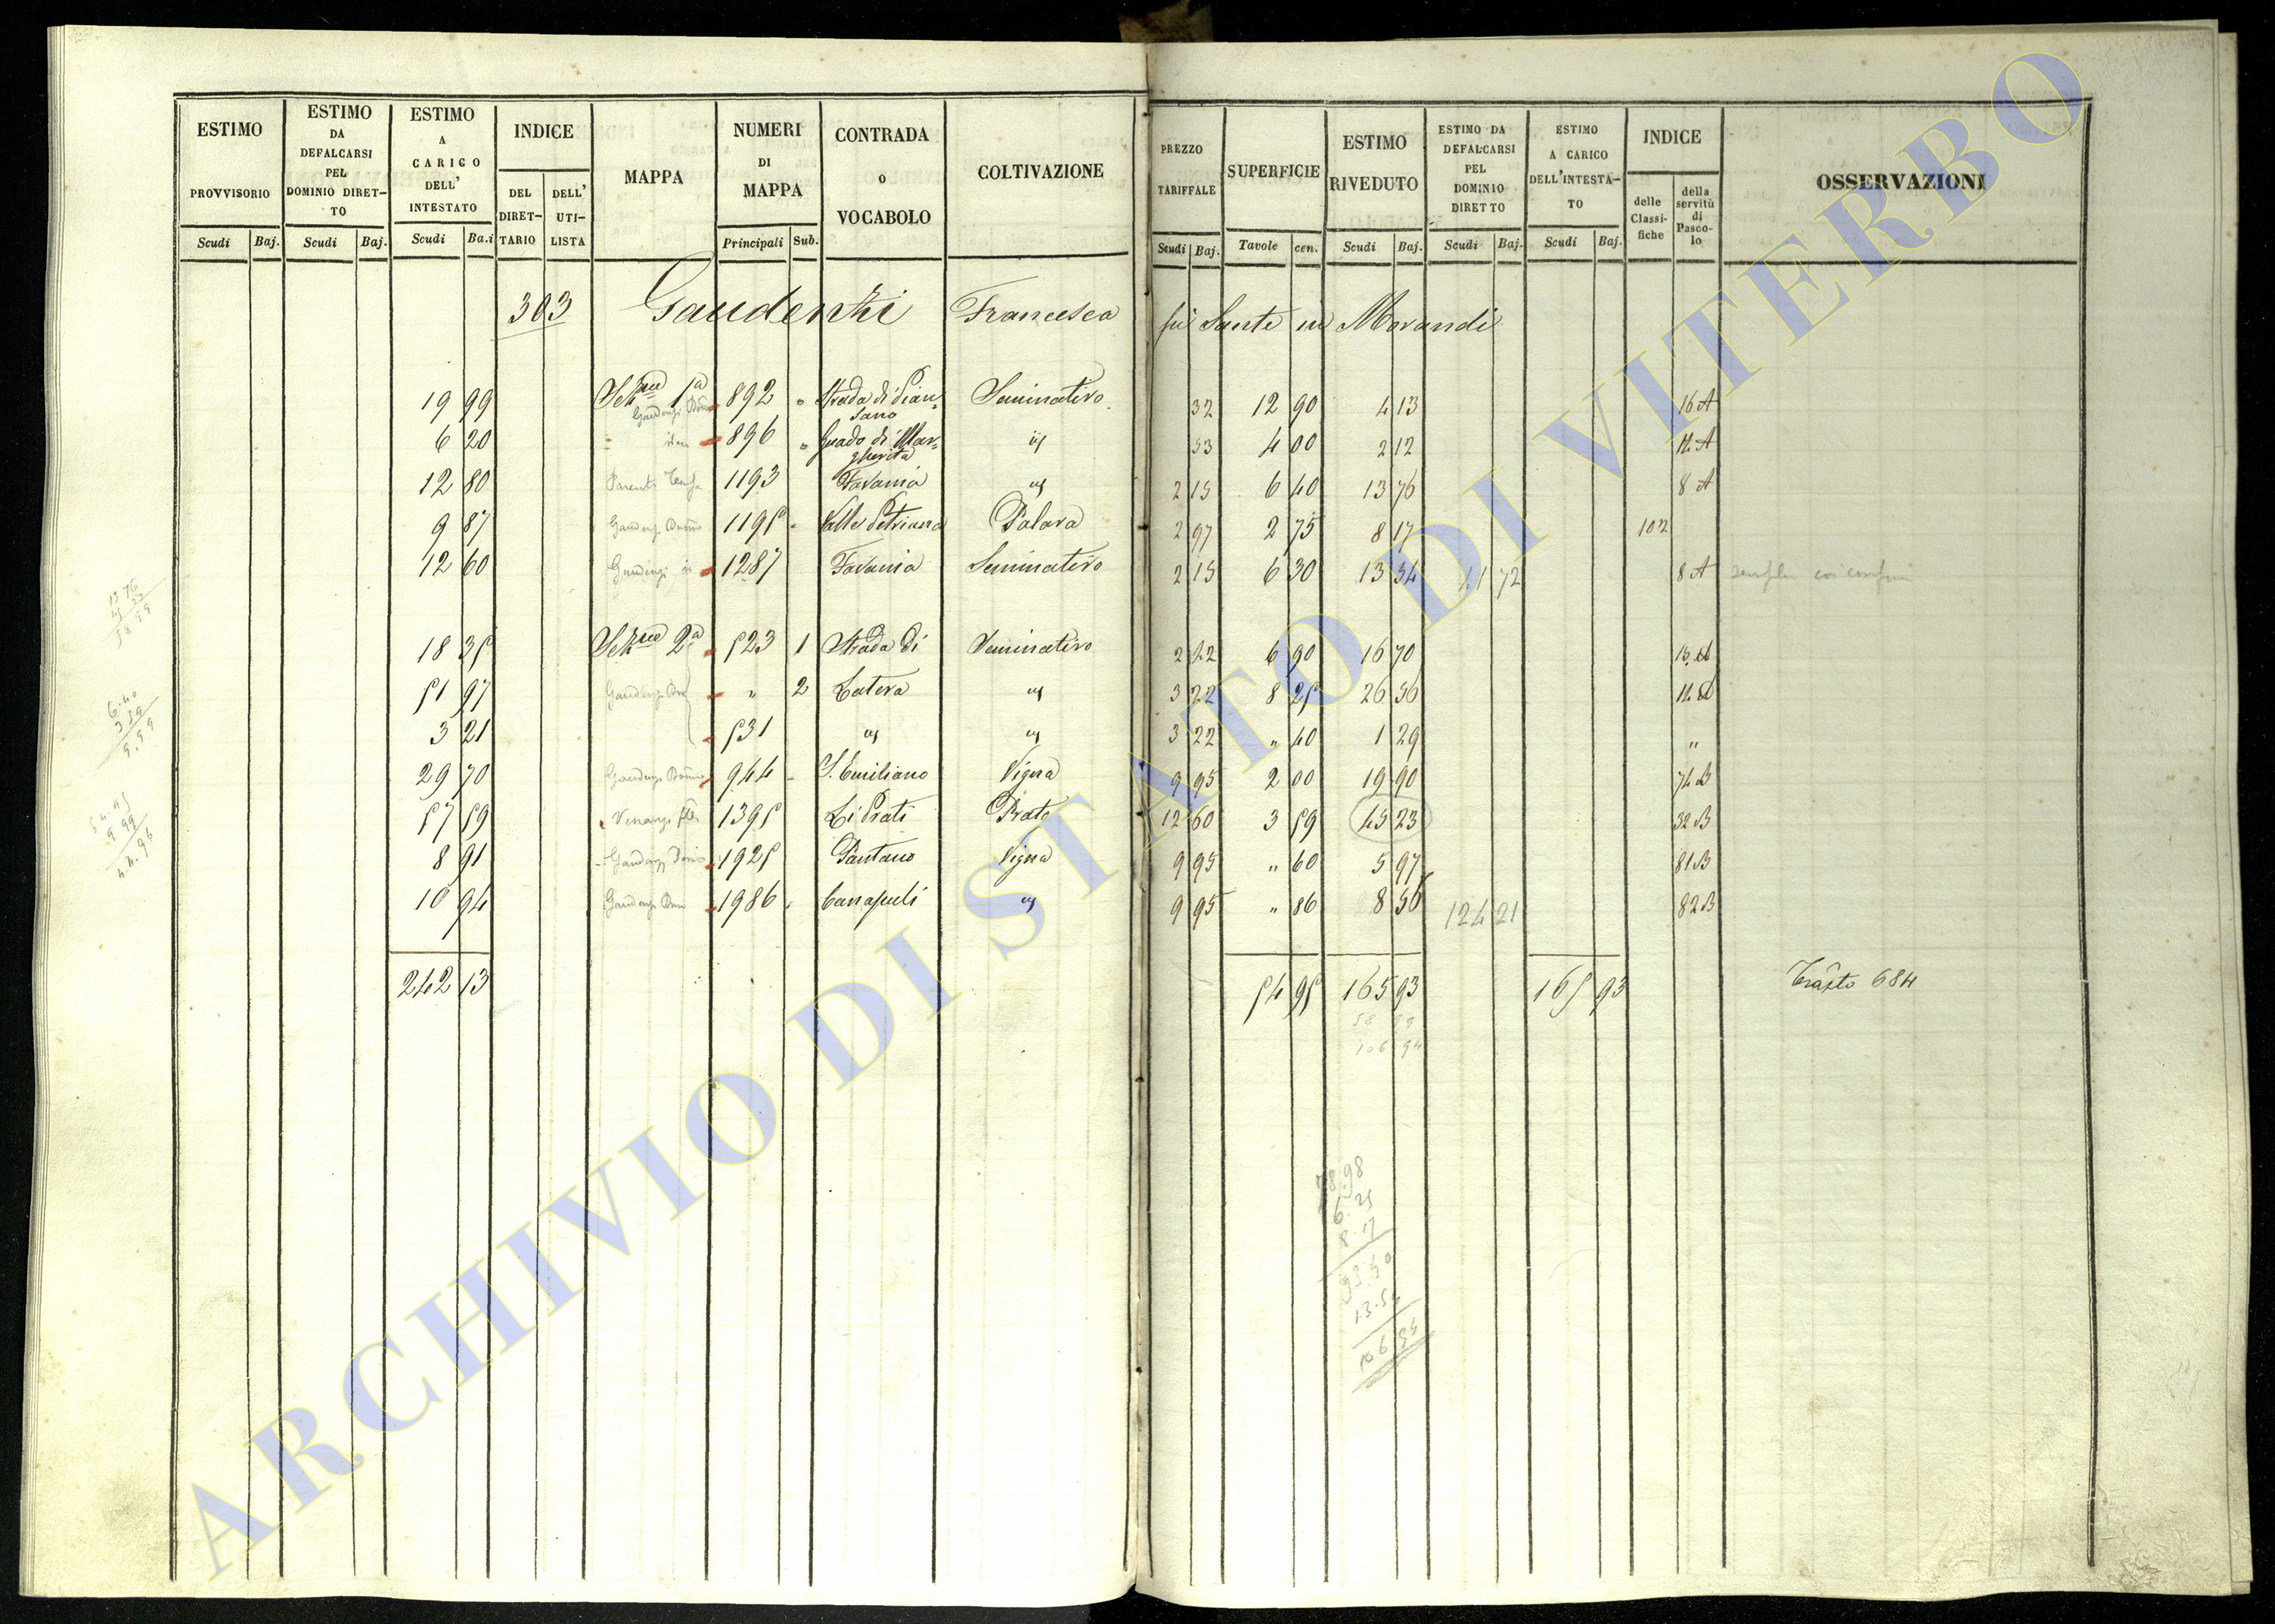 ESTIMO PROVVISORIO
ESTIMO DA DEFALCARSI PEL DOMINIO DIRET-TO
ESTIMO A CARICO DELL' INTESTATO
INDICE
DEL DIRET-TARIO
DELL' UTI-LISTA
MAPPA
NUMERI DI MAPPA
CONTRADA O VOCABOLO
COLTIVAZIONE
PREZZO TARIFFALE
SUPERFICIE
ESTIMO RIVEDUTO
ESTIMO DA DEFALCARSI PEL DOMINIO DIRETTO
ESTIMO A CARICO DELL'INTESTA-TO
INDICE
delle Classi-fiche
della servitù di Pasco-lo
OSSERVAZIONI
Scudi Baj. Scudi Baj. Scudi Ba.i Principali Sub. Scudi Baj. Tavole cen. Scudi Baj. Scudi Baj. Scudi Baj.
303 Gaudenzi Francesca fu Sante in Morandi
19 99 Sezne 1a 892 " Strada di Pian-sano Seminativo 32 12 90 4 13 16 A
6 20 idem 896 " Guado di Mar-gherita id 53 4 00 2 12 14 A
12 80 1193 Favania id 2 15 6 40 13 76 8 A
9 87 1195 Valle Petriana Palara 2 97 2 75 8 17 102
12 60 1287 Favania Seminativo 2 15 6 30 13 54 41 72 8 A
18 35 Sezne 2a 523 1 Strada di Seminativo 2 42 6 90 16 70 13 A
51 97 " 2 Latera id 3 22 8 25 26 56 14 A
3 21 531 id id 3 22 " 40 1 29 "
29 70 944 S. Emiliano Vigna 9 95 2 00 19 90 74 B
57 59 1395 Li Prati Prato 12 60 3 59 45 23 32 B
8 91 1925 Pantano Vigna 9 95 " 60 5 97 81 B
10 94 1986 Canapuli id 9 95 " 86 8 56 124 21 82 B
242 13 54 95 165 93 165 93 Trasto 684
58 99
106 94
13 76
45 23
58 99
6.40
3 59
9.99
54.95
9 99
44.96
78.98
6.25
8 17
93.40
13.54
106 94
ARCHIVIO DI STATO DI VITERBO